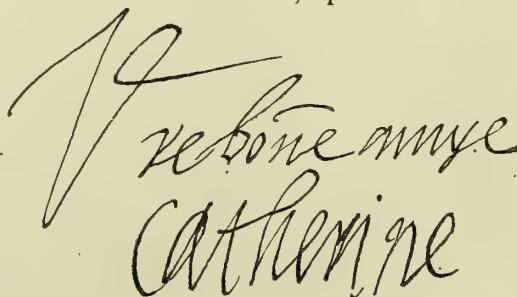 V
re bōne amye
Catherine